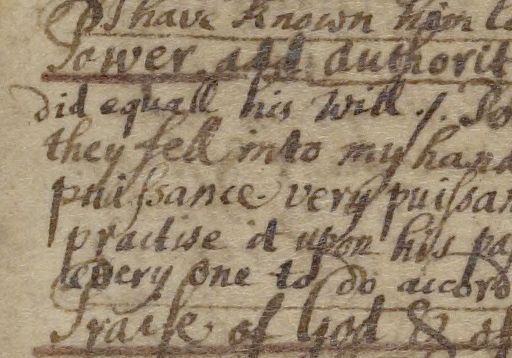 I have known him
Power, add Authorit
did equall his will ./. 
they fell into my hand
puissance very puissan
practise it upon his pa
every one to do accord
Praise of God & of